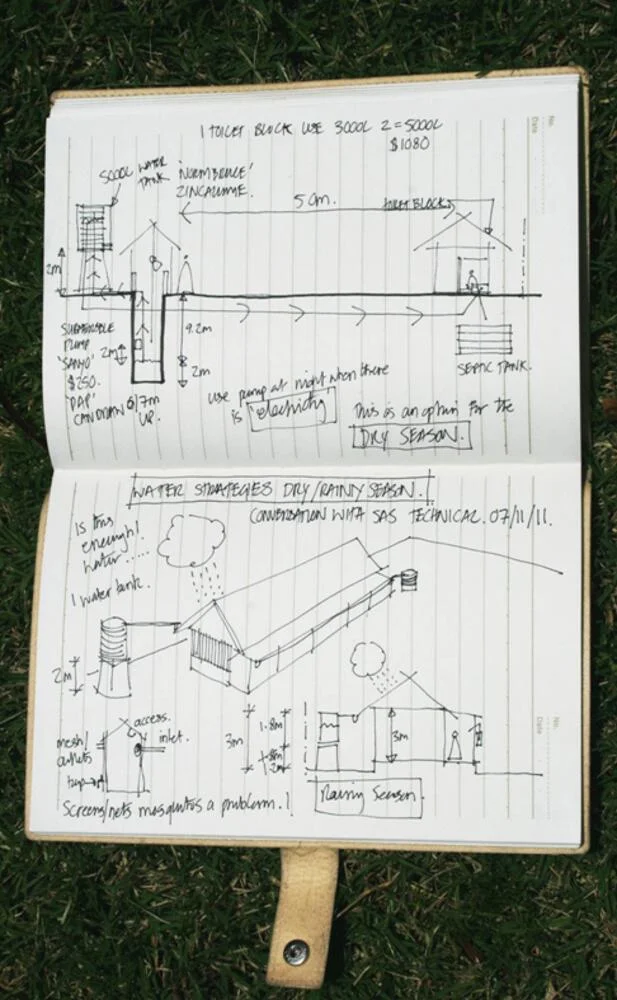 No.
Date
1 TOILET BLOCK USE 3000L 2 = 5000L
$1080
5000L WATER
TANK
ZINCALUME.
50m.
TOILET BLOCK
2m
9.2m
2m
2m
SUBMERSIBLE
PUMP
'SANYO'
$250.
'DAP'
CAN DRAW 6/7m
UP.
SEPTIC TANK.
use pump at night when there
is 'electricity'
This is an option for the
DRY SEASON.
WATER STRATEGIES DRY/RAINY SEASON.
CONVERSATION WITH SAS TECHNICAL. 07/11/11.
Is this
enough!
water.....
1 water tank.
2m
access.
mesh/
outlets
inlet.
tap
3m
1.8m
3m
Rainy Season.
Screens/nets mosquitos a problem.!
No.
Date